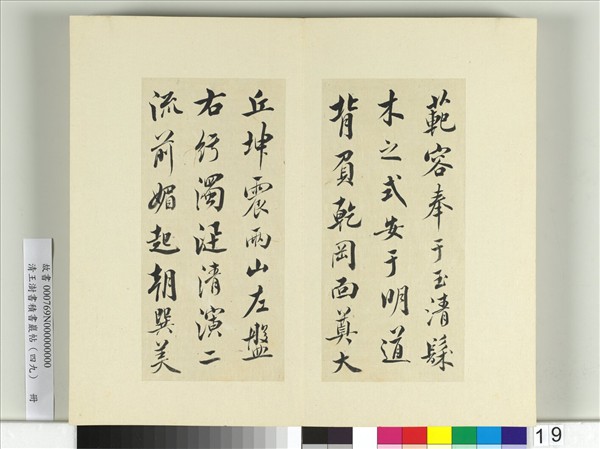 範容奉于玉清髹
木之式安于明道
背負乾岡面奠大
丘坤震兩山左盤
右紆濁涇清演二
流前媚起朝巽美
故書000769N000000000
清王澍書積書巖帖(四九) 冊
19